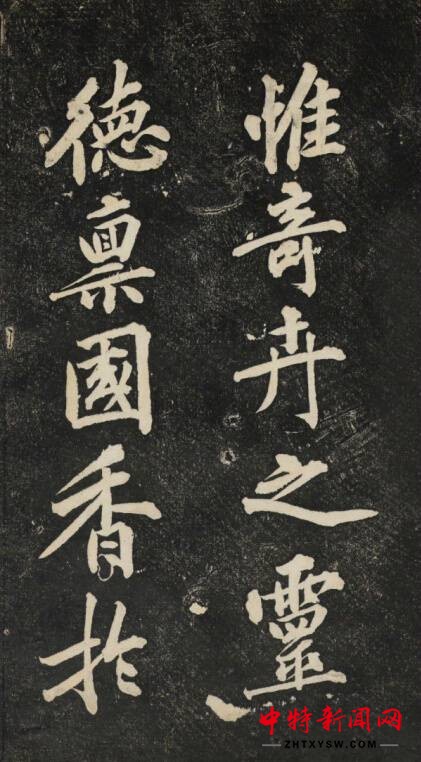 惟奇卉之靈
德禀國香於
中特新闻网
ZHTXYSW.COM